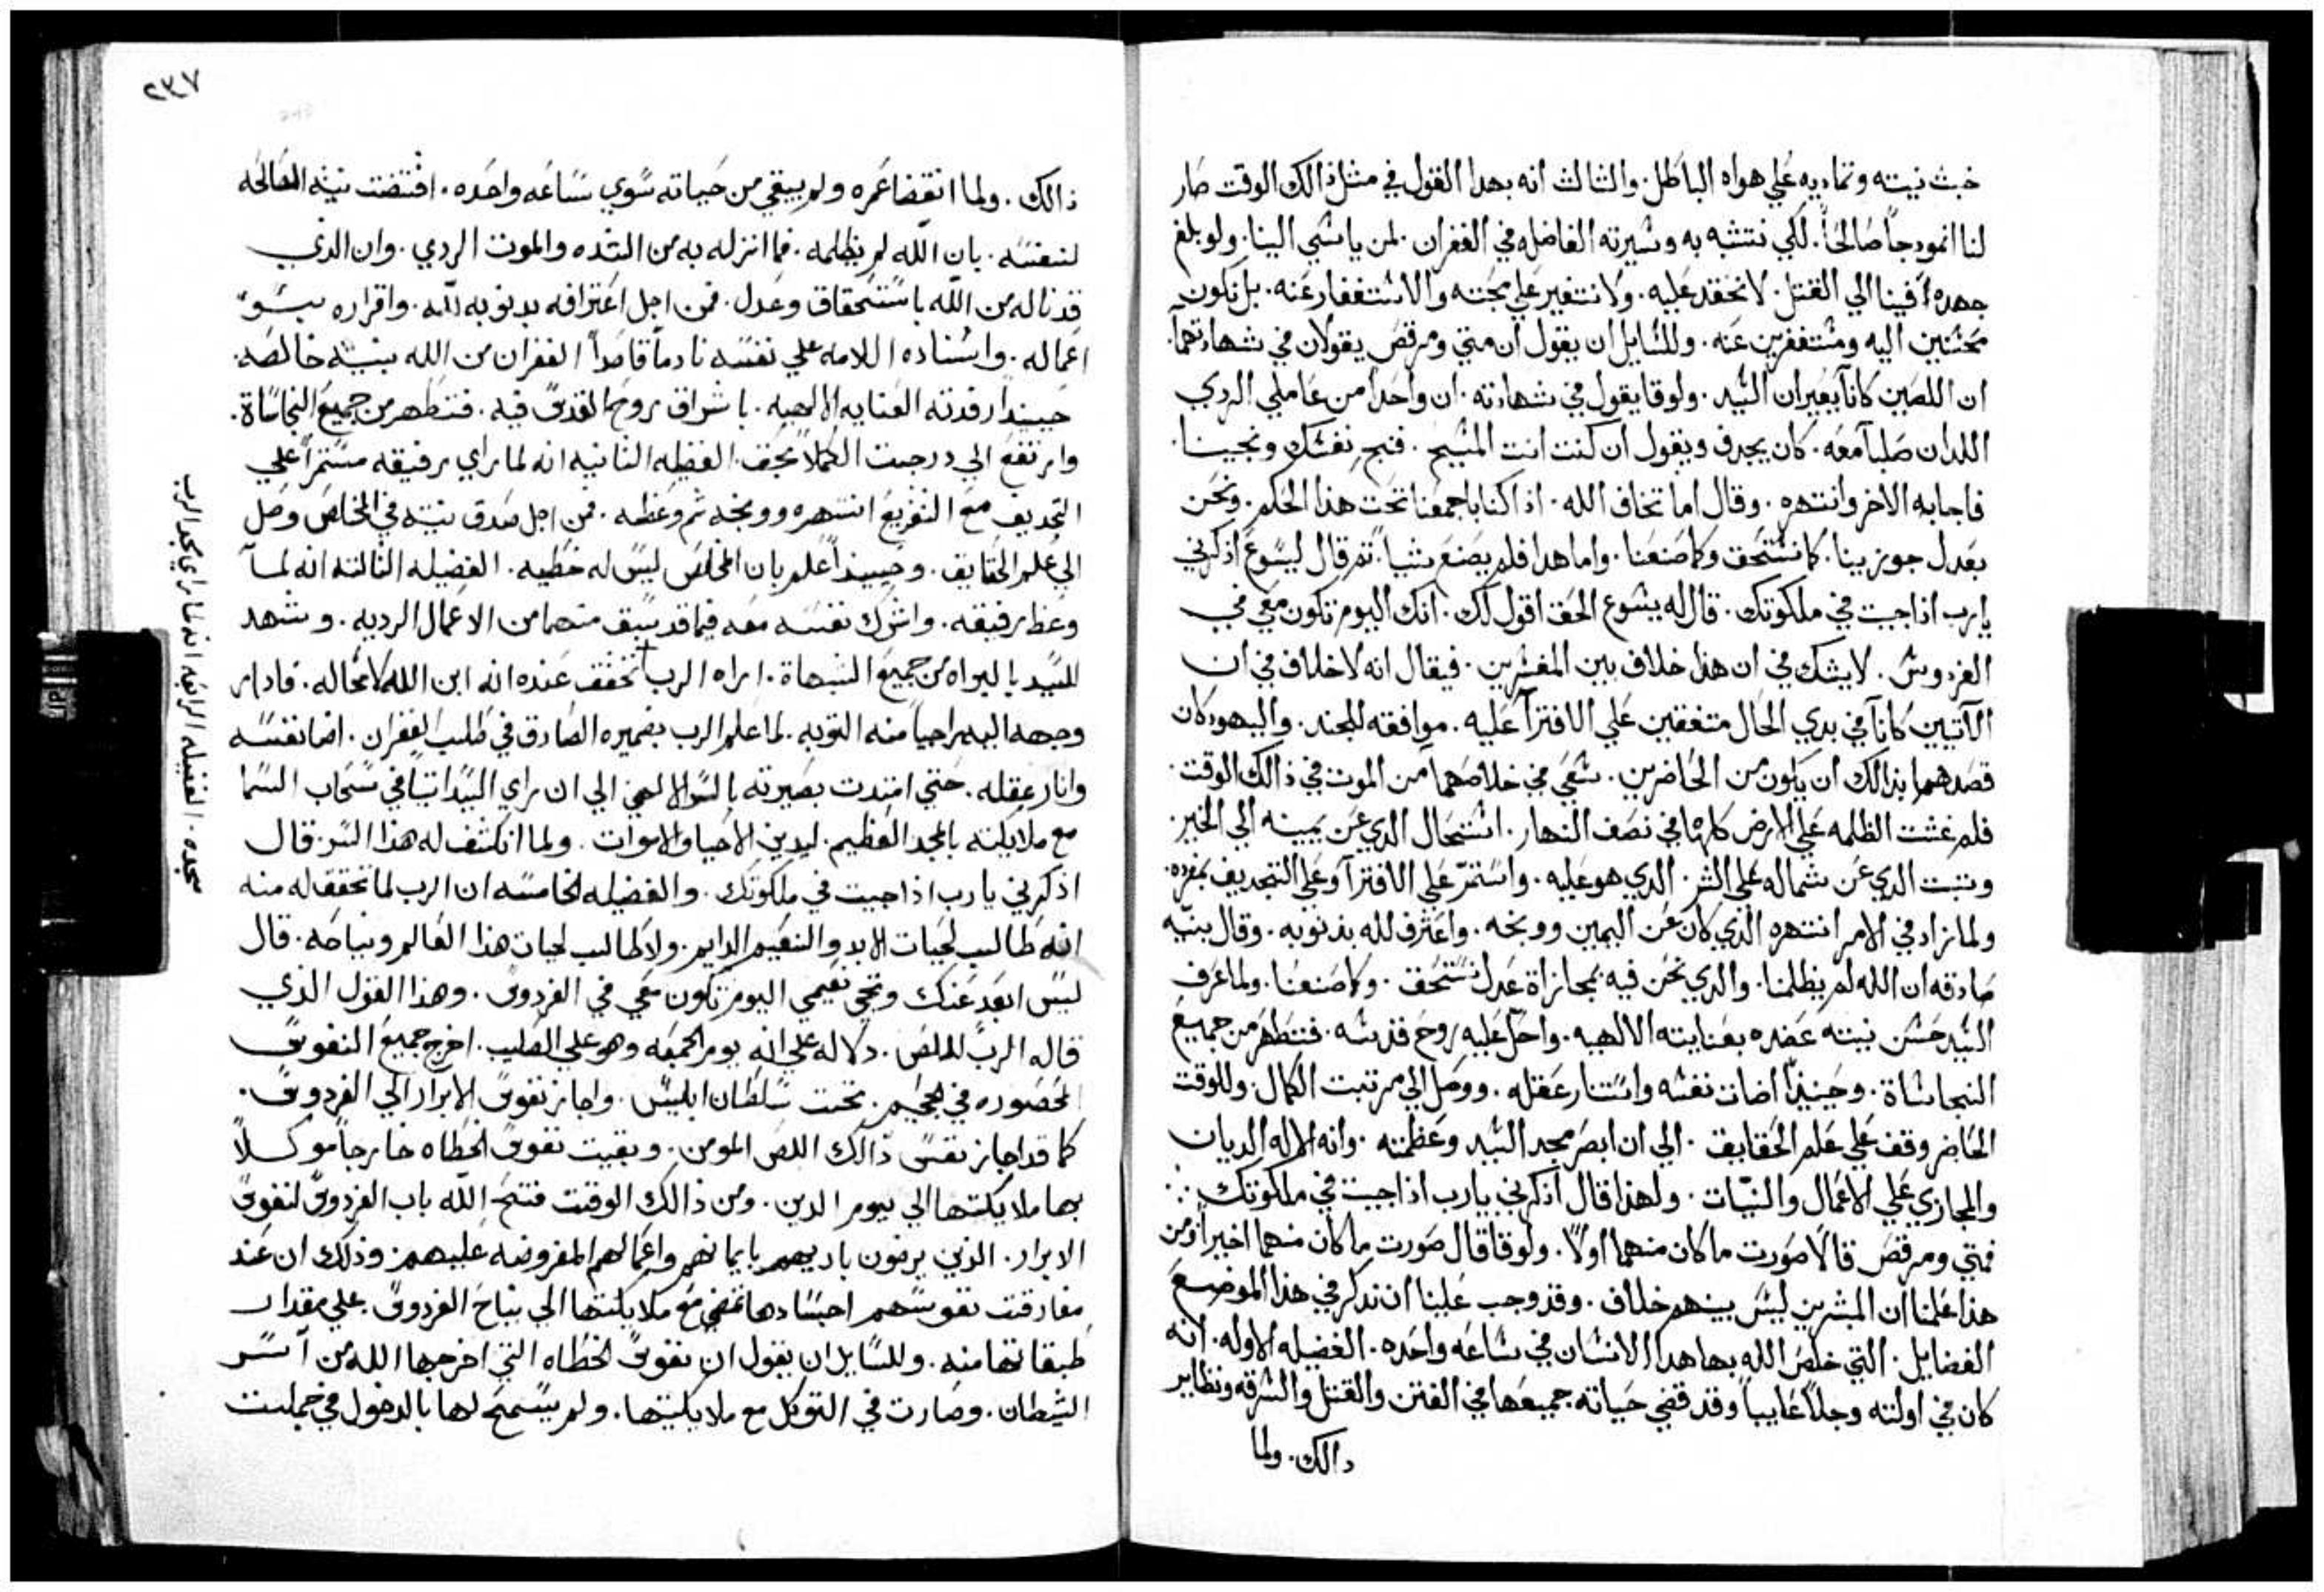 خبث نيته وتماديه علي هواه الباطل. والثالث انه بهدا القول في مثل ذالك الوقت صار
لنا انمودجاً صالحاً. لكي نتشبه به وبسيرته الفاضله في الغفران. لمن ياسي الينا. ولو بلغ
جهده فينا الي القتل. لا نحقد عليه. ولا نتغير علي محبته والاستغفار عنه. بل نكون
محسنين اليه ومستغفرين عنه. وللسايل ان يقول ان متي ومرقص يقولان في شهادتهما.
ان اللصين كانا يعيران السيد. ولوقا يقول في شهادته. ان واحداً من عاملي الردي
اللدان صلبا معه. كان يجدف ويقول ان كنت انت المسيح. فنج نفسك ونجينا.
فاجابه الاخر وانتهره. وقال اما تخاف الله. اذ اكنا باجمعنا تحت هذا الحكم. ونحن
بعدل جوزينا. كما نستحق وكما صنعنا. واما هدا فلم يصنع شيا. تم قال ليسوع اذكرني
يارب اذا جيت في ملكوتك. قال له يسوع الحق اقول لك. انك اليوم تكون معي في
الفردوس. لا يشك في ان هذا خلاف بين المفسرين. فيقال انه لا خلاف في ان
الآتيين كانا في بدي الحال متفقين علي الافترآ عليه. موافقه للجند. واليهود كان
قصدهما بذالك ان يكون من الحاضرين. شفي في خلاصهما من الموت في ذالك الوقت.
فلم غشت الظلمه علي الارض كلها في نصف النهار. استحال الدي عن يمينه الي الخير.
وتبت الدي عن شماله علي الشر. الدي هو عليه. واستمر علي الافترآ وعلي التجديف بمفرده.
ولما زاد في الامر انتهره الدي كان عن اليمين ووبخه. واعترف لله بذنوبه. وقال بنيه
صادقه ان الله لم يظلمنا. والدي نحن فيه بمجازاة عدل نستحق. وكما صنعنا. ولما عرف
السيد حسن نيته عضده بعنايته الالهيه. واحل عليه روح قدسه. فتطهر من جميع
النجاساة. وحينيذاً اضات نفسه واستنار عقله. ووصل الي مرتبت الكمال. وللوقت
الحاضر وقف علي علم الحقايق. الي ان ابصر مجد السيد وعظمته. وانه الاله الديان
والمجازي علي الاعمال والنيات. ولهذا قال اذكرني يارب اذا جيت في ملكوتك.
فمتي ومرقص قالا صورت ما كان منهما اولاً. ولوقا قال صورت ما كان منهما اخيراً ومن
هذا علمنا ان المبشرين ليس بينهم خلاف. وقد وجب علينا ان ندكر في هذا الموضع
الفضايل. التي خلص الله بها هدا الانسان في ساعه واحده. الفضيله الاوله. انه
كان في اولته وجلاً غايباً وقد قضي حياته جميعها في الفتن والقتل والسرقه ونظاير
دالك. ولما
٢٣٧
ذالك. ولما انقضا عمره ولم يبقي من حياته سوي ساعه واحده. اقتضت نيته الصالحه
لنفسه. بان الله لم يظلمه. فما انزله به من الشده والموت الردي. وان الذي
قد ناله من الله باستحقاق وعدل. فمن اجل اعترافه بدنوبه لله. واقراره بسوء
اعماله. واسناده اللامه علي نفسه نادماً قاصداً الغفران من الله بنيه خالصه.
حينيداً رفدته العنايه الالهيه. باشراق روح القدس فيه. فتطهر من جميع النجاساة.
وارتفع الي درجت الكملا بحق. الفظيله الثانيه انه لما راي رفيقه مستمراً علي
التجديف مع التفريع انتهره ووبخه تم وعظه. فمن اجل صدق نيته في المخلص وصل
الي علم الحقايق. وحينيداً علم بان المخلص ليس له خطيه. الفضيله الثالثه انه لما
وعظ رفيقه. واشرك نفسه معه فيما قد سبق منهما من الاعمال الرديه. وشهد
للسيد بالبراه من جميع الشبهاة. اراه الرب تحقق عنده انه ابن الله لا محاله. فادار
وجهه اليه راجياً منه التوبه. لما علم الرب بضميره الصادق في طلب الغفران. اضا نفسه
وانار عقله. حتي امتدت بصيرته بالسر الالهي الي ان راي السيد اتياً في سحاب السما
مع ملايكته بالمجد العظيم. ليدين الاحيا والاموات. ولما انكشف له هذا السر. قال
اذكرني يا رب اذا جيت في ملكوتك. والفضيله الخامسه ان الرب لما تحقق له منه
انه طالب لحيات الابد والنعيم الدايم. ولا طالب لحيات هذا العالم ونياحه. قال
ليس ابعد عنك وتجي نعيمي اليوم تكون معي في الفردوس. وهذا القول الذي
قاله الرب للص. دلاله علي انه يوم الجمعه وهو علي الصليب. اخرج جميع النفوس
المحصوره في الجحيم. تحت سلطان ابليس. واجاز نفوس الابرار الي الفردوس.
كما قد اجاز نفس ذالك اللص المومن. وبقيت نفوس الخطاه خارجاً موكلاً
بها ملايكتها الي يوم الدين. ومن ذالك الوقت فتح الله باب الفردوس لنفوس
الابرار. الذين يرضون باريهم بايمانهم واعمالهم المفروضه عليهم. وذلك ان عند
مفارقت نفوسهم اجسادها تمضي مع ملايكتها الي نياح الفردوس. علي مقدار
طبقاتها منه. وللسايل ان يقول ان نفوس الخطاه التي اخرجها الله من آسر
الشيطان. وصارت في التوكل مع ملايكتها. ولم يسمح لها بالدخول في جملت
الفضيله الرابعه انه لما راي مجد الرب
سجده.